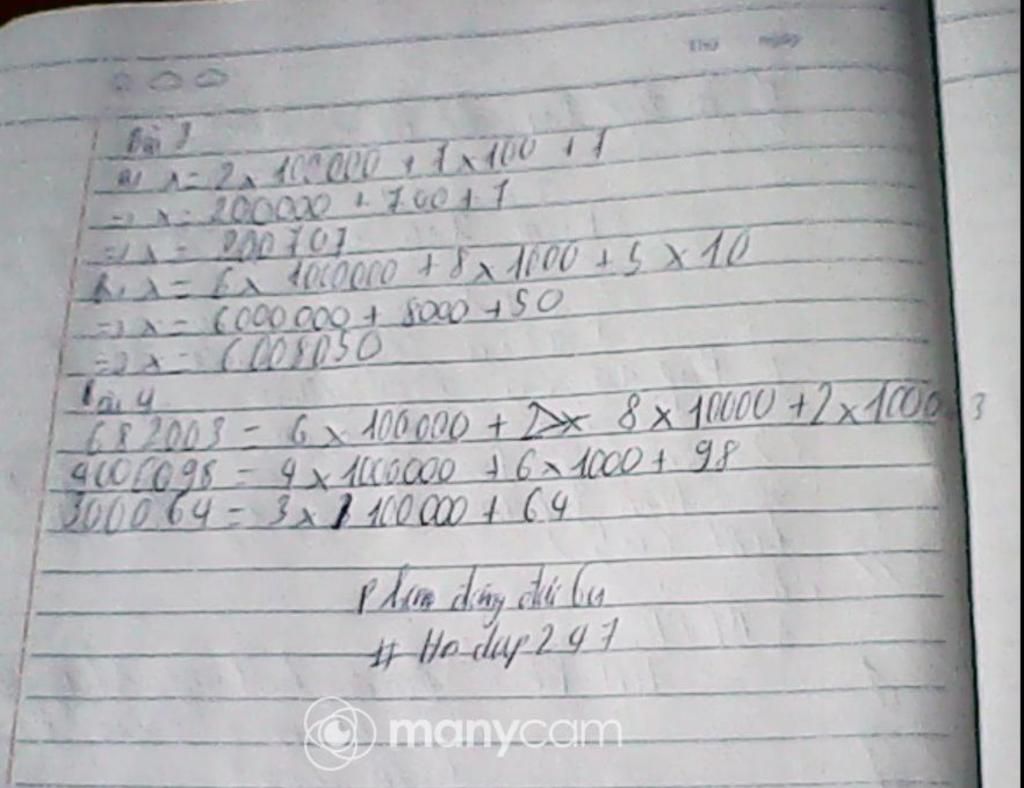 Thứ ngày
Bài 3
a, x = 2 x 100000 + 7 x 100 + 1
=> x = 200000 + 700 + 1
=> x = 200701
b, x = 6 x 1000000 + 8 x 1000 + 5 x 10
=> x = 6000000 + 8000 + 50
=> x = 6008050
Bài 4
682003 = 6 x 100000 + 8 x 10000 + 2 x 1000 3
4006098 = 4 x 1000000 + 6 x 1000 + 98
300064 = 3 x 100000 + 64
# Hodap247
manycam